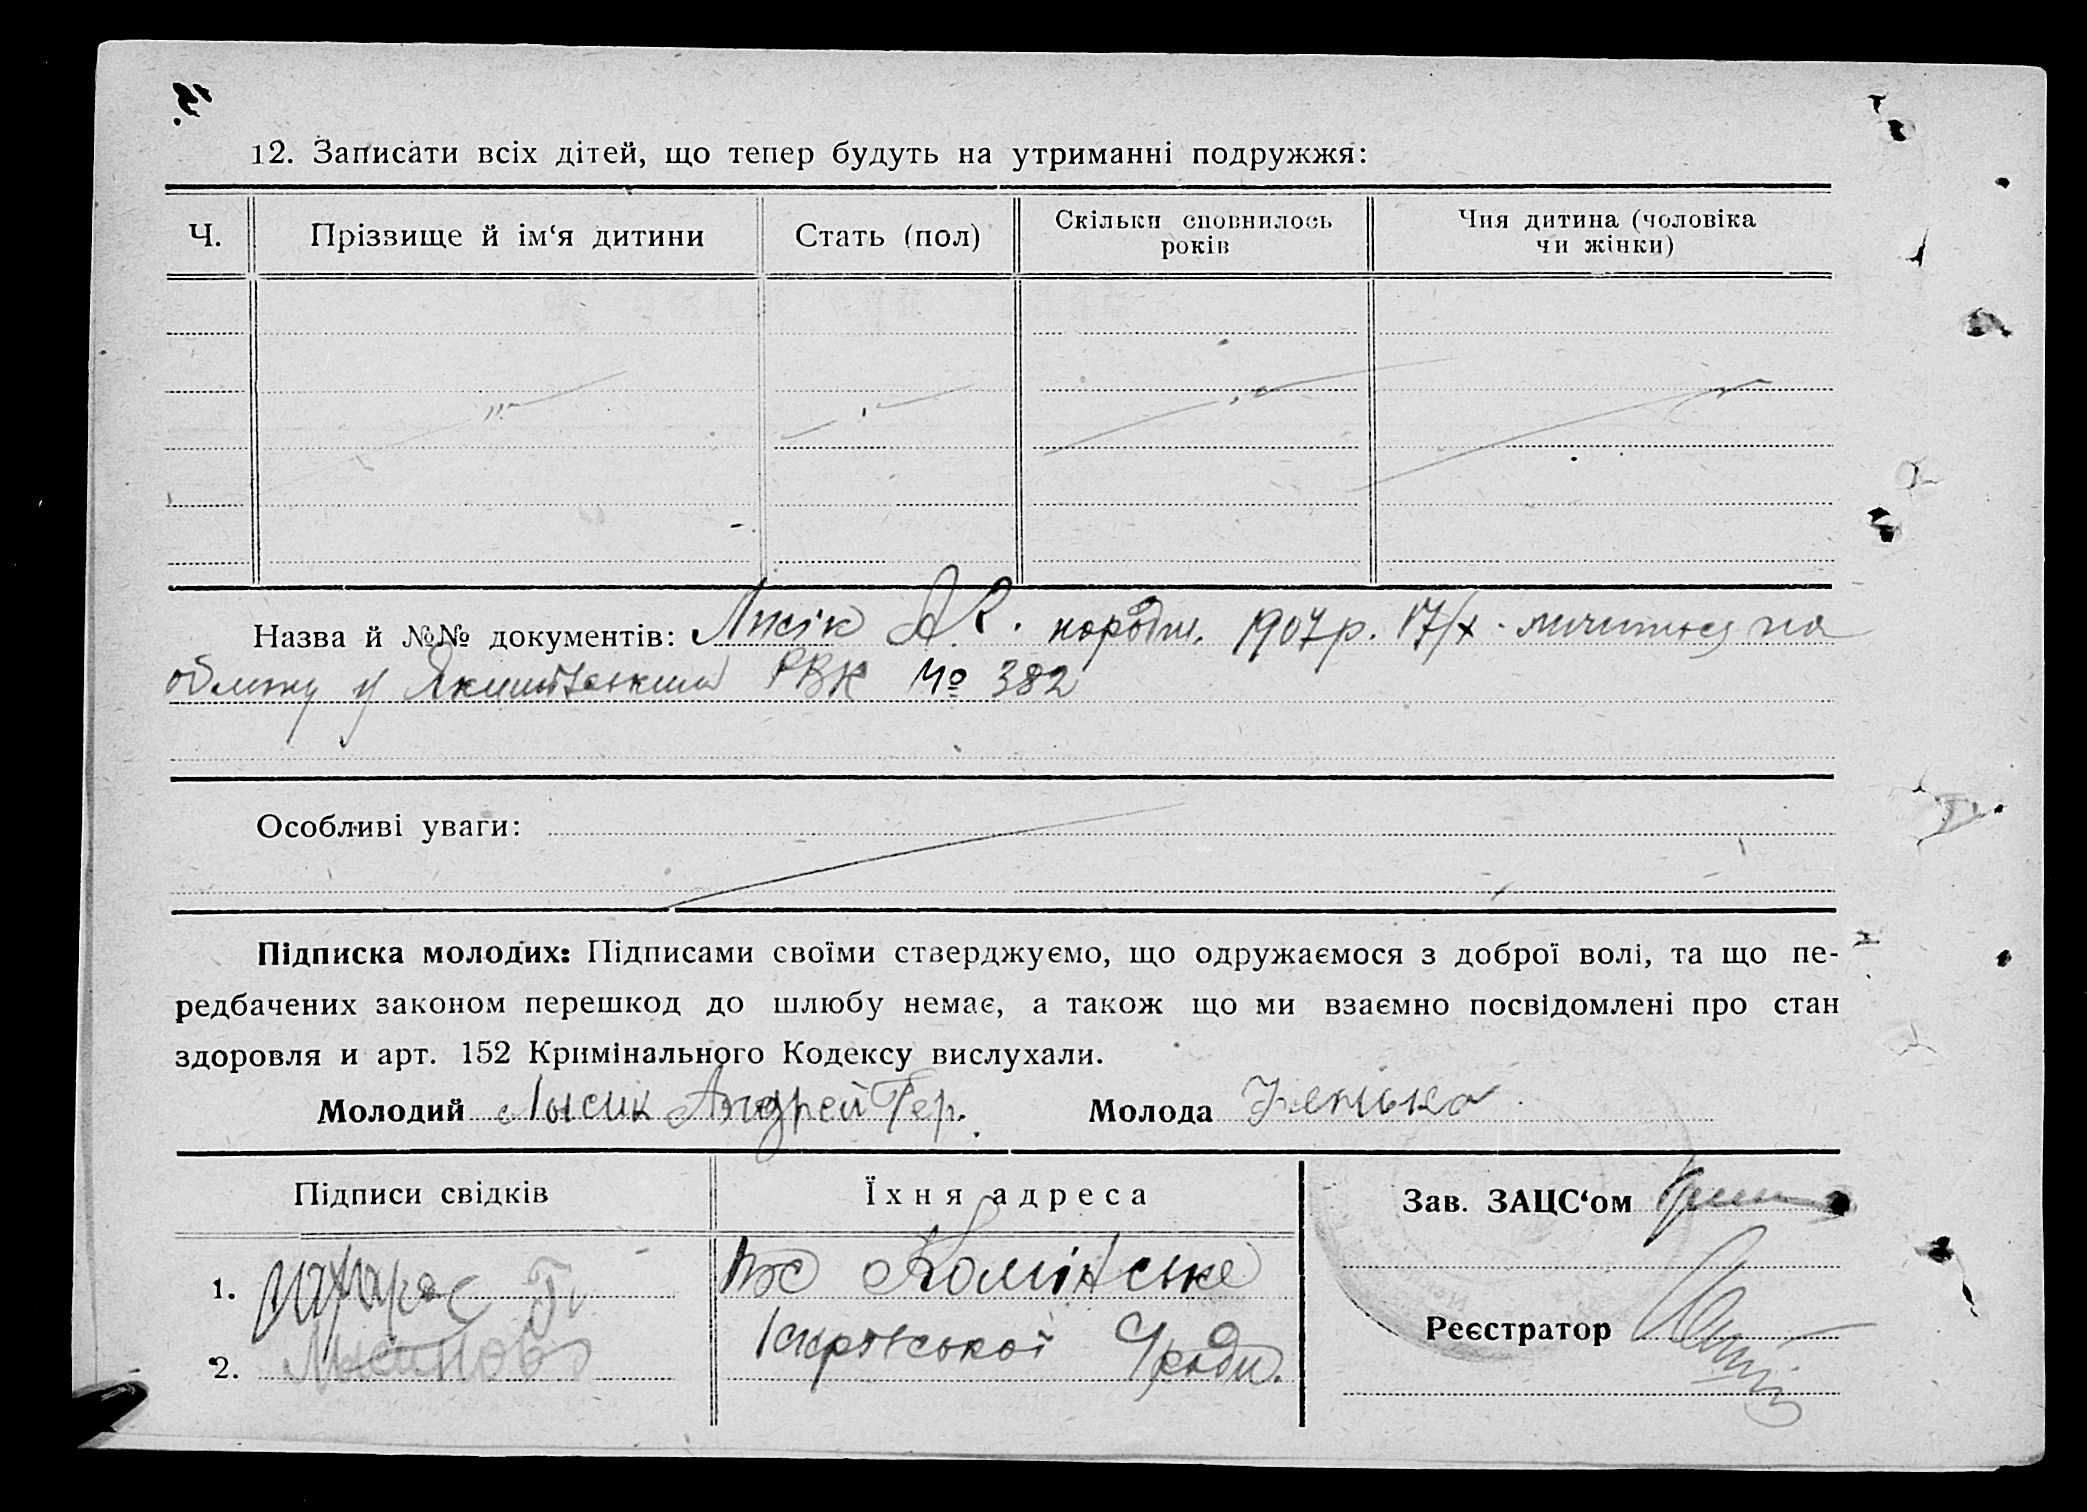 12. Записати всіх дітей, що тепер будуть на утриманні подружжя:
Ч. Прізвище й ім‘я дитини Стать (пол) Скільки сповнилось років Чия дитина (чоловіка чи жінки)
Назва й №№ документів: Лисік А 1907 р. 17/X на
обліку у РВК № 382
Особливі уваги:
Підписка молодих: Підписами своїми стверджуємо, що одружаємося з доброї волі, та що пе-
редбачених законом перешкод до шлюбу немає, а також що ми взаємно посвідомлені про стан
здоровля и арт. 152 Кримінального Кодексу вислухали.
Молодий Лысик Андрей Гер. Молода
Підписи свідків Їхня адреса Зав. ЗАЦС‘ом
1.
Реєстратор
2.